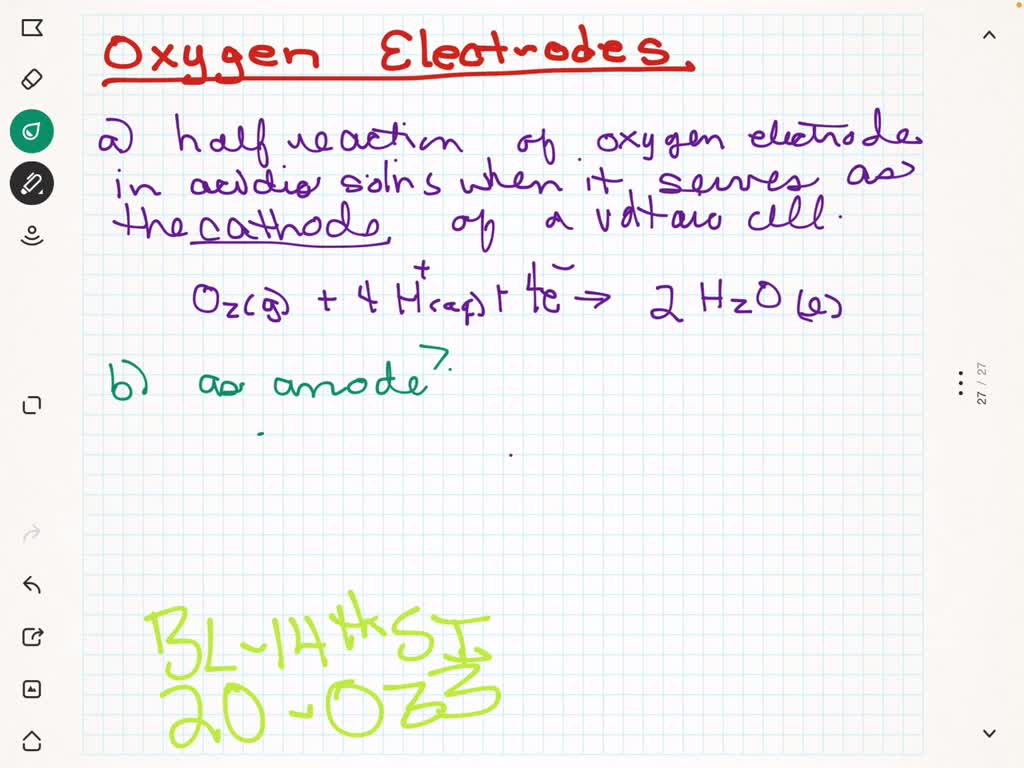 Oxygen Electrodes.
a) half reaction of oxygen electrode
in acidic solns when it serves as
the cathode of a voltaic cell.
O2(g) + 4 H+(aq) + 4e- → 2 H2O (l)
b) as anode?
27 / 27
BL-14th SI
20-033